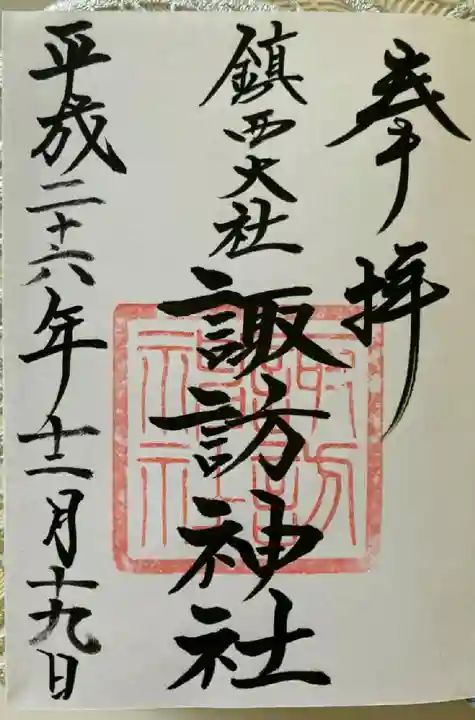 奉拝
鎮西大社
諏訪神社
平成二十六年十二月十九日
諏訪神社